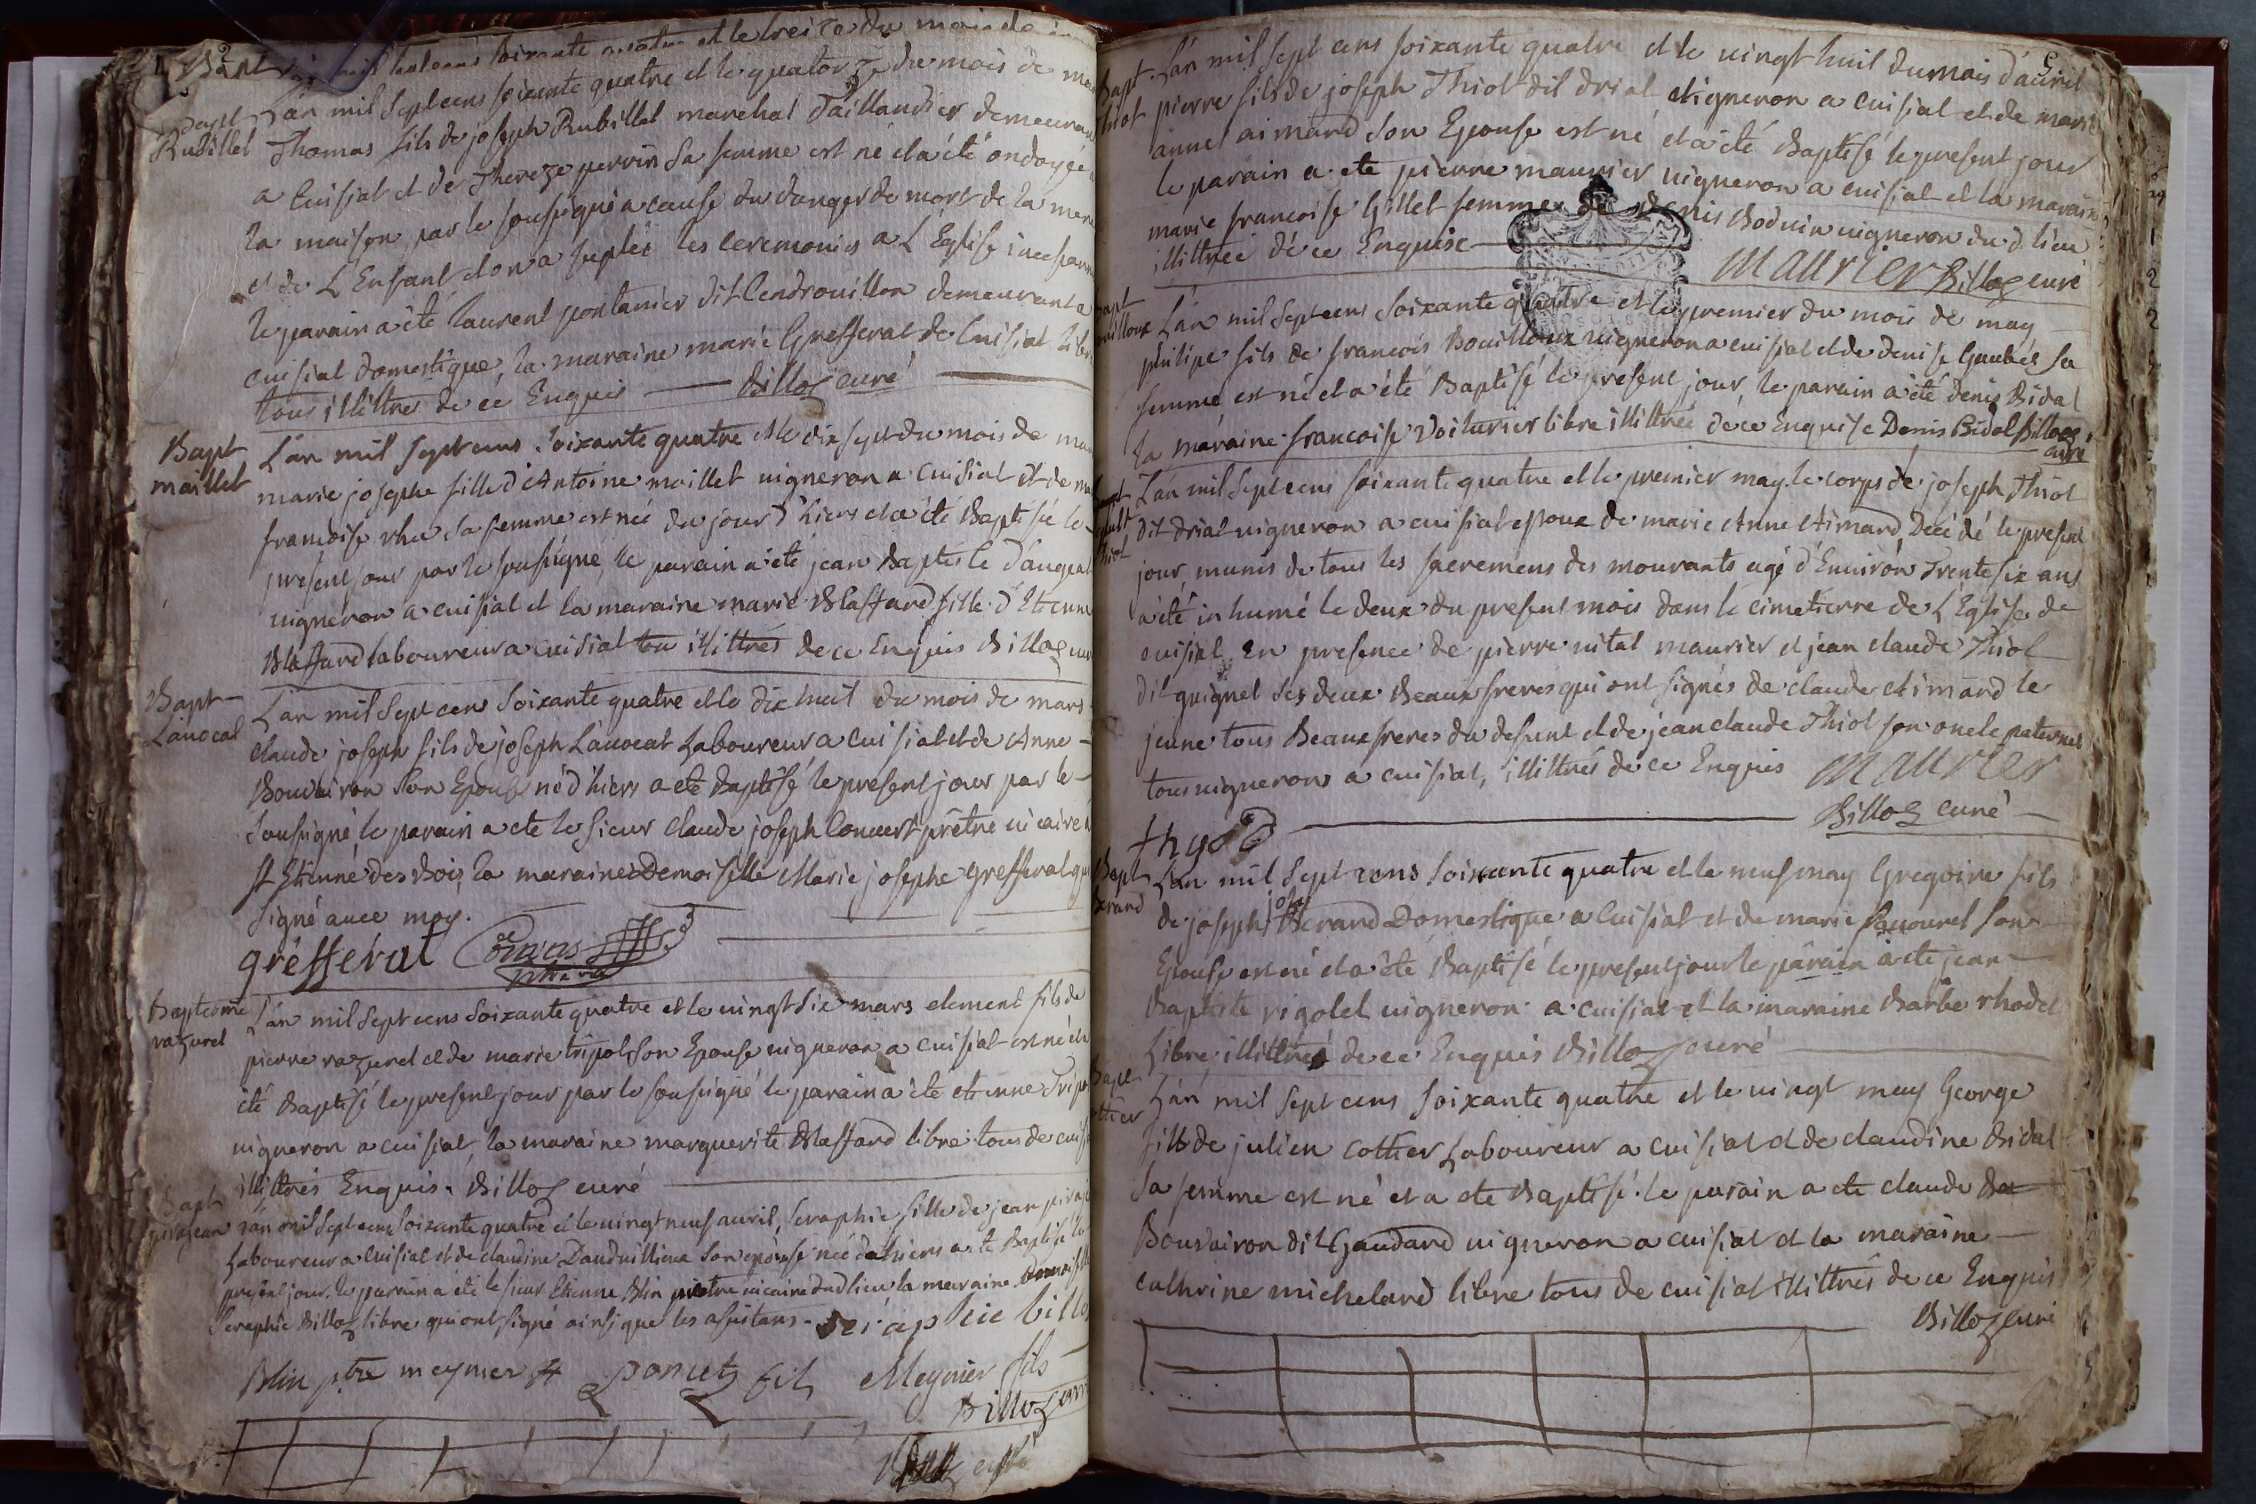 Bapt L'an mil sept cens soixante quatre et le treize du mois de
Bapt L'an mil sept cens soixante quatre et le quatorze du mois de mars
Rubillet Thomas fils de joseph Rubillet marechal Taillandier demeurant
a Cuisiat et de Thereze perrin sa femme est né et a été ondoyée a
la maison par le sousigné a cause du danger de mort de la mere
et de L'Enfant et on a suplée les ceremonies a L'Eglise
le parain a été laurent pontanier dit Cendrouillon demeurant a
cuisiat domestique, la maraine marie Grefferat de Cuisiat libre
tous illittres de ce Enquis Billoz curé
Bapt L'an mil sept cens soixante quatre et le dix sept du mois de mars
maillet marie josephe fille d'Antoine maillet vigneron a cuisiat et de marie
francoise sa femme est née du jour d'hiers et a été Baptisée le
present jour par le sousigné, le parain a été jean Baptiste
vigneron a cuisiat et la maraine marie Blaffard fille d'Etienne
Blaffard laboureur a cuisiat tou illittrés de ce Enquis Billoz curé
Bapt L'an mil sept cens soixante quatre et le dix huit du mois de mars
Lavocat claude joseph fils de joseph Lavocat Laboureur a cuisiat et de Anne
Bouvairon son Epouse né d'hiers a eté Baptisé le present jour par le
sousigné, le parain a ete le sieur claude joseph Convert prêtre vicaire a
St Etienne des Bois, la maraine Demoiselle Marie josephe Grefferat qui
signé avec moy.
grefferat
baptême L'an mil sept cens soixante quatre et le vingt six mars clement fils de
razurel pierre razurel et de marie tripoz son Epouse vigneron a cuisiat est né et a
été Baptisé le present jour par le sousigné le parain a été etienne Tripoz
vigneron a cuisiat, la maraine marguerite Blaffard libre tous de cuisiat
illittrés Enquis. Billoz curé
Bapt L'an mil sept cens soixante quatre et le vingt neuf avril, seraphie fille de jean
Laboureur a cuisiat et de claudine son epouse née d'hiers a ete Baptisée le
present jour, le parain a été le sieur Etienne Blin pretre vicaire dud lieu la maraine demoiselle
Seraphie Billoz libre qui ont signé ainsi que les assistans. séraphie billoz
Blin ptre meynier poncet fils Meynier fils
Billoz curé
Billoz curé
5
Bapt L'an mil sept cens soixante quatre et le vingt huit du mois d'avril
thiot pierre fils de joseph Thiot dit drial vigneron a cuisiat et de marie
anne aimard son Epouse est né et a été Baptisé le present jour
le parain a ete pierre maurier vigneron a cuisiat et la maraine
marie francoise Gillet femme de denis Boduin vigneron du d. lieu
illittrée de ce Enquise Maurier Billoz curé
bapt L'an mil sept cens soixante quatre et le premier du mois de may
bouilloux philipe fils de francois Bouilloux vigneron a cuisiat et de denise Gaubet sa
femme est né et a été Baptisé le present jour, le parain a été denis Bidal
la maraine francoise Voiturier libre illittrée de ce Enquise Denis Bidal Billoz
curé
L'an mil sept cens soixante quatre et le premier may le corps de joseph Thiot
dit drial vigneron a cuisiat epoux de marie Anne Aimard, Decédé le present
thiot jour, munis de tous les sacremens des mourants agé d'Environ Trente six ans
a été inhumé le deux du present mois dans le cimetierre de L'Eglise de
cuisiat, En presence de pierre vital maurier et jean claude Thiot
dit guignet ses deux Beaux freres qui ont signés de claude Aimard le
jeune tous Beaux freres du defunt et de jean claude Thiot son oncle paternel
tous vignerons a cuisiat, illittrés de ce Enquis Maurier
thyod Billoz curé
Bapt L'an mil sept cens soixante quatre et le neuf may Gregoire fils
de joseph Berand Domestique a Cuisiat et de marie son
Epouse est né et a été Baptisé le present jour le parain a ete jean
Baptiste rigolet vigneron a cuisiat et la maraine Barbe rhodet
Libre, illittrés de ce Enquis Billoz curé
Bapt L'an mil sept cens soixante quatre et le vingt may George
cottier fils de julien cottier Laboureur a cuisiat et de claudine Bidal
sa femme est né et a ete Baptisé le parain a ete claude
Bouvairon dit Gaudard vigneron a cuisiat et la maraine
cathrine michelard libre tous de cuisiat illittrés de ce Enquis
Billoz curé